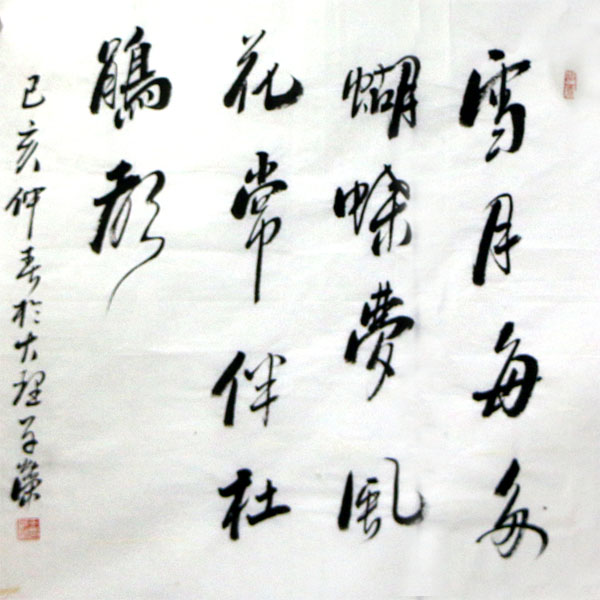 雪月每多
蝴蝶夢風
花常伴杜
鵑顏
己亥仲春於大理榮